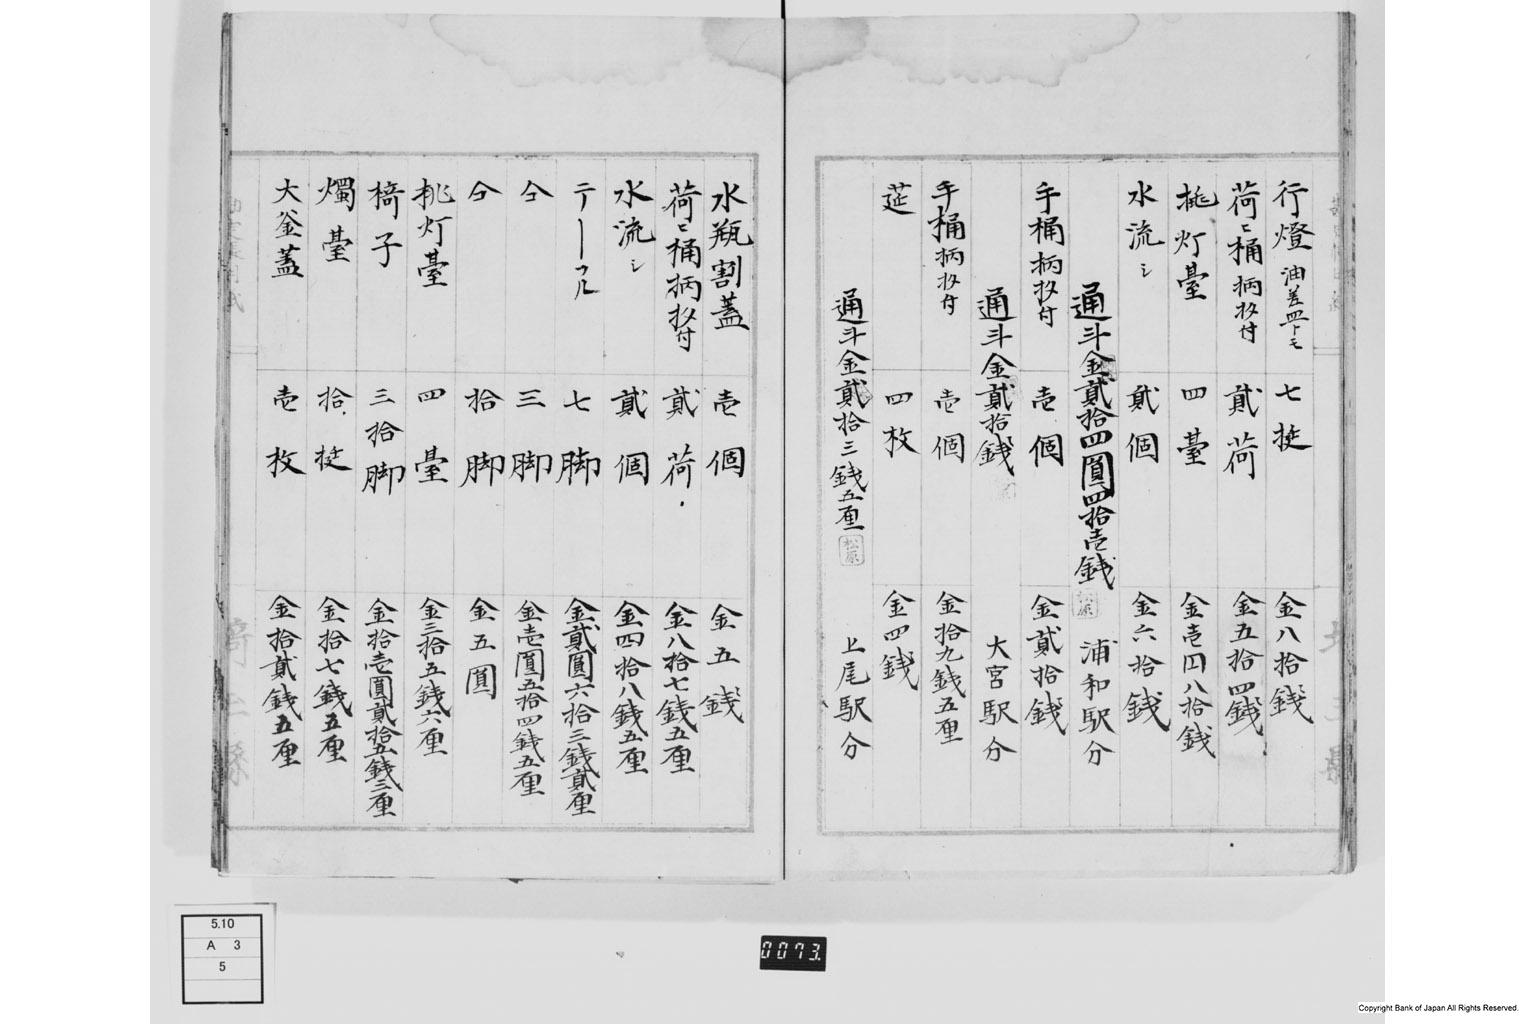 行燈 油差皿トモ 七挺 金八拾銭
荷ヒ桶柄杓付 貳荷 金五拾四銭
挑灯臺 四臺 金壱円八拾銭
水流シ 貳個 金六拾銭
通斗金貳拾四圓四拾壱銭 浦和駅分
手桶柄杓付 壱個 金貳拾銭
通斗金貳拾銭 大宮駅分
手桶柄杓付 壱個 金拾九銭五厘
莚 四枚 金四銭
通斗金貳拾三銭五厘 松原 上尾駅分
水瓶割蓋 壱個 金五銭
荷ヒ桶柄杓付 貳荷 金八拾七銭五厘
水流シ 貳個 金四拾八銭五厘
テーフル 七脚 金貳圓六拾三銭貳厘
仝 三脚 金壱圓五拾四銭五厘
仝 拾脚 金五圓
挑灯臺 四臺 金三拾五銭六厘
椅子 三拾脚 金拾壱圓貳拾五銭三厘
燭臺 拾挺 金拾七銭五厘
大釜蓋 壱枚 金拾貳銭五厘
5.10
A 3
5
0073.
Copyright Bank of Japan All Rights Reserved.